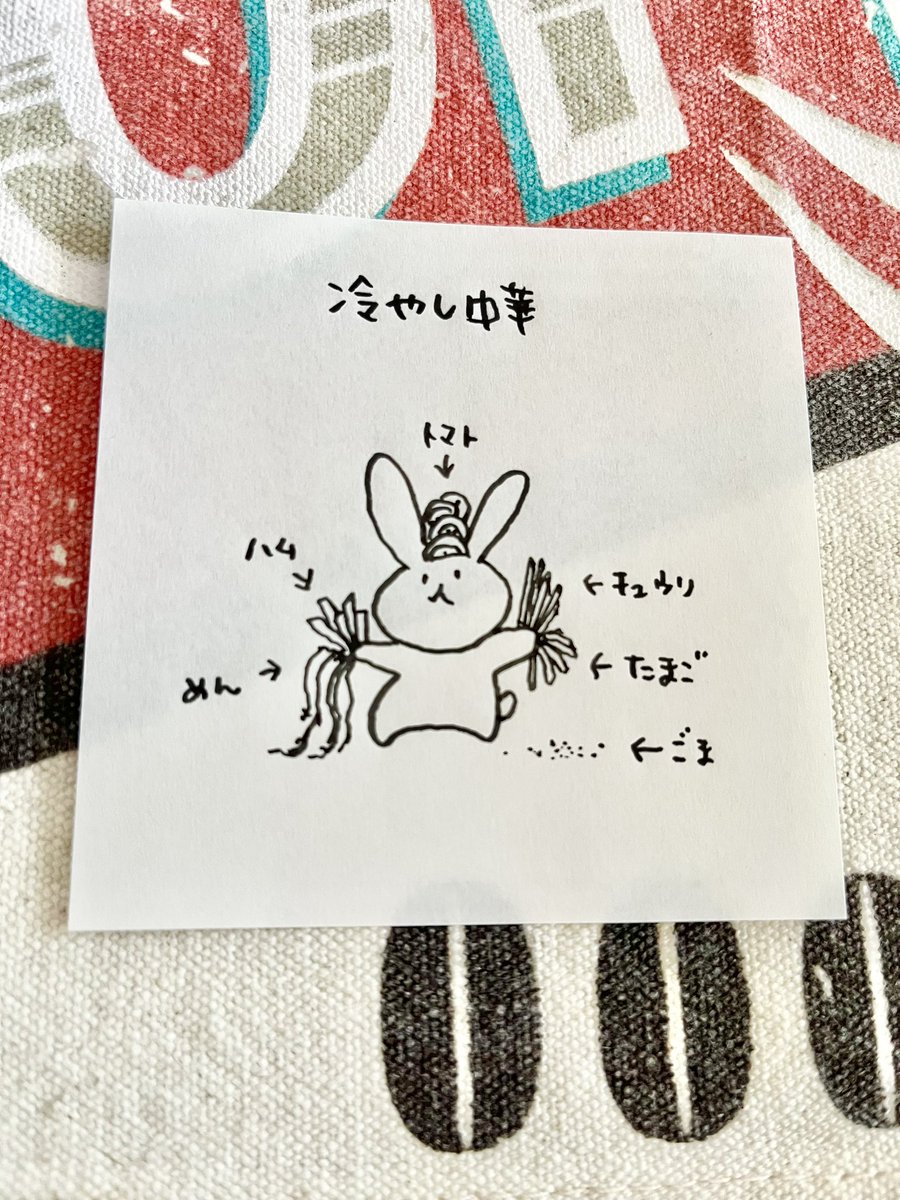 冷やし中華
トマト
ハム
←キュウリ
めん→
←たまご
←ごま